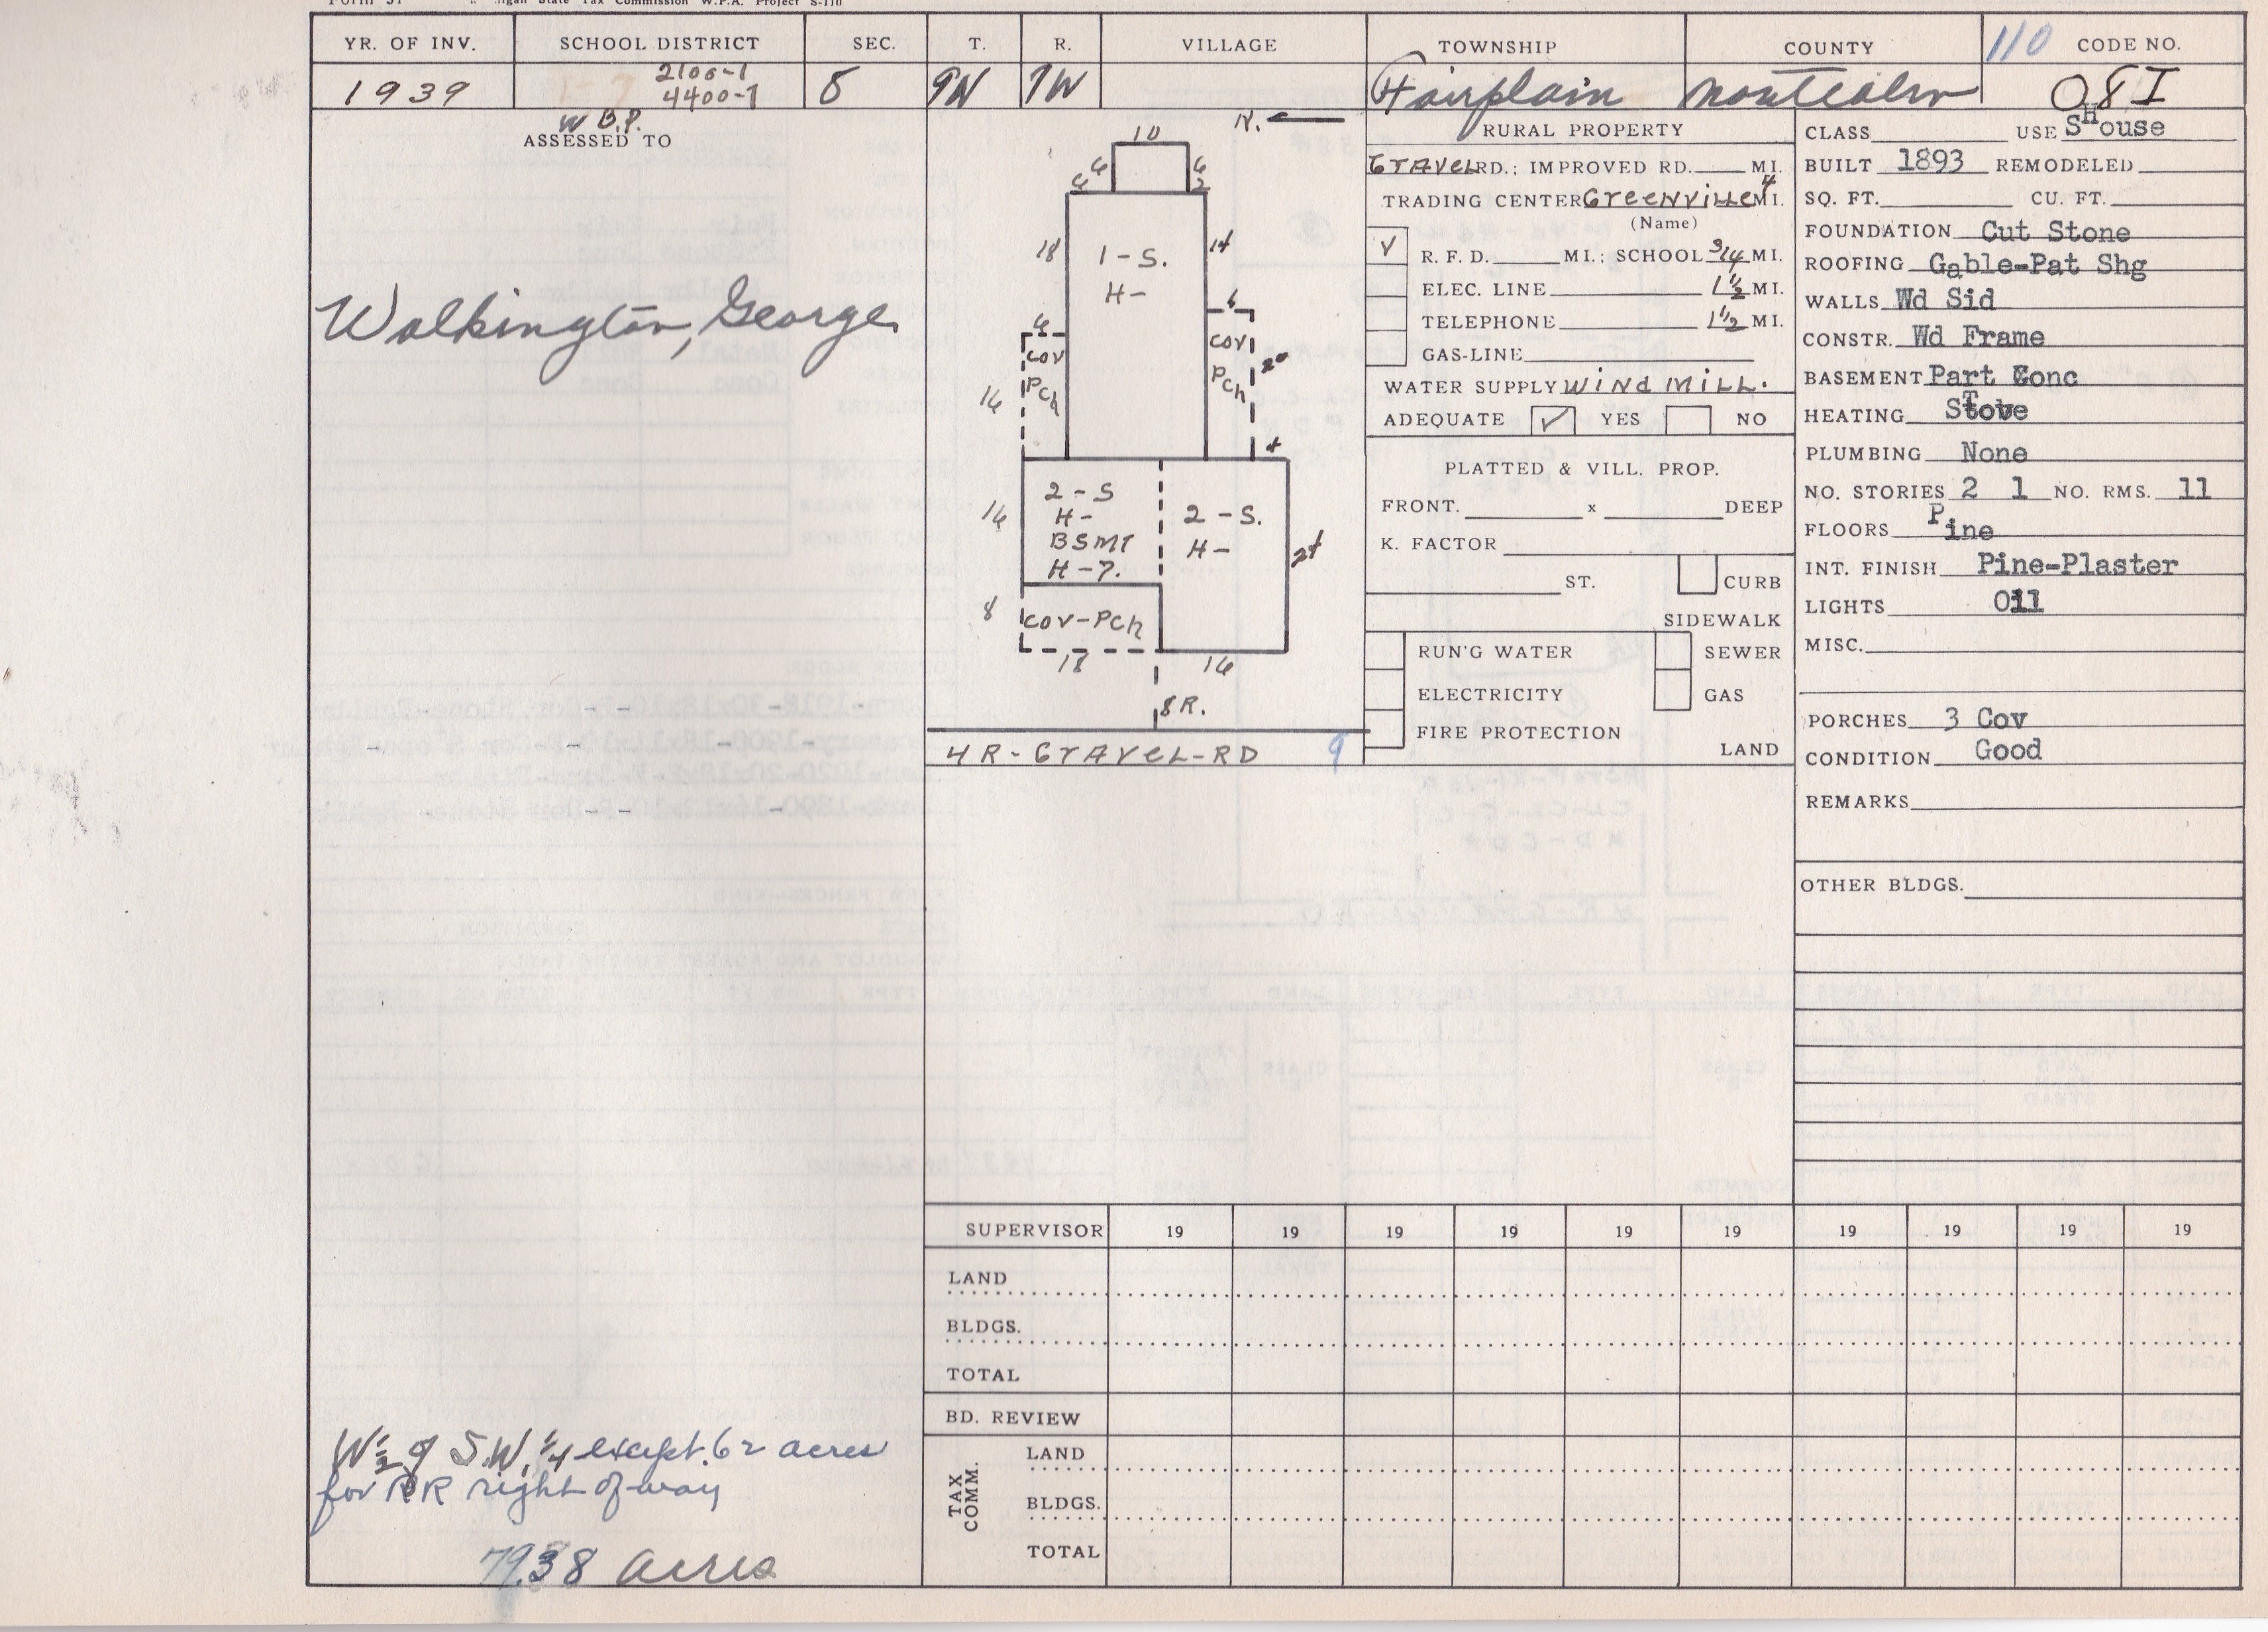 State Tax Commission W.P.A. Project S-110
YR. OF INV. SCHOOL DISTRICT SEC. T. R. VILLAGE TOWNSHIP COUNTY 110 CODE NO.
1939 2100-1 8 9N 7W Fairplain Montcalm 08I
4400-7
W B.P.
ASSESSED TO
Walkington, George
W 1/2 of S.W. 1/4 except .62 acres
for RR right of way
79.38 acres
N.
10
6 6
4 2
18 1-S. 14
H-
6 6
COV PCh COV PCh 20
16
4
16 2-S 2-S. 24
H- H-
BSMT
H-7.
8 COV-PCh
18 16
8R.
4R-GRAVEL-RD 9
RURAL PROPERTY
GRAVEL RD.; IMPROVED RD. MI.
TRADING CENTER GREENVILLE 4 MI.
(Name)
V R. F. D. MI.; SCHOOL 3/4 MI.
ELEC. LINE 1 1/2 MI.
TELEPHONE 1 1/2 MI.
GAS-LINE
WATER SUPPLY WIND MILL.
ADEQUATE ✓ YES NO
PLATTED & VILL. PROP.
FRONT. x DEEP
K. FACTOR
ST. CURB
SIDEWALK
RUN'G WATER SEWER
ELECTRICITY GAS
FIRE PROTECTION
LAND
CLASS USE SHouse
BUILT 1893 REMODELED
SQ. FT. CU. FT.
FOUNDATION Cut Stone
ROOFING Gable-Pat Shg
WALLS Wd Sid
CONSTR. Wd Frame
BASEMENT Part Conc
HEATING Stove
PLUMBING None
NO. STORIES 2 1 NO. RMS. 11
FLOORS Pine
INT. FINISH Pine-Plaster
LIGHTS Oil
MISC.
PORCHES 3 Cov
CONDITION Good
REMARKS
OTHER BLDGS.
SUPERVISOR 19 19 19 19 19 19 19 19 19 19
LAND
BLDGS.
TOTAL
BD. REVIEW
TAX COMM.
LAND
BLDGS.
TOTAL